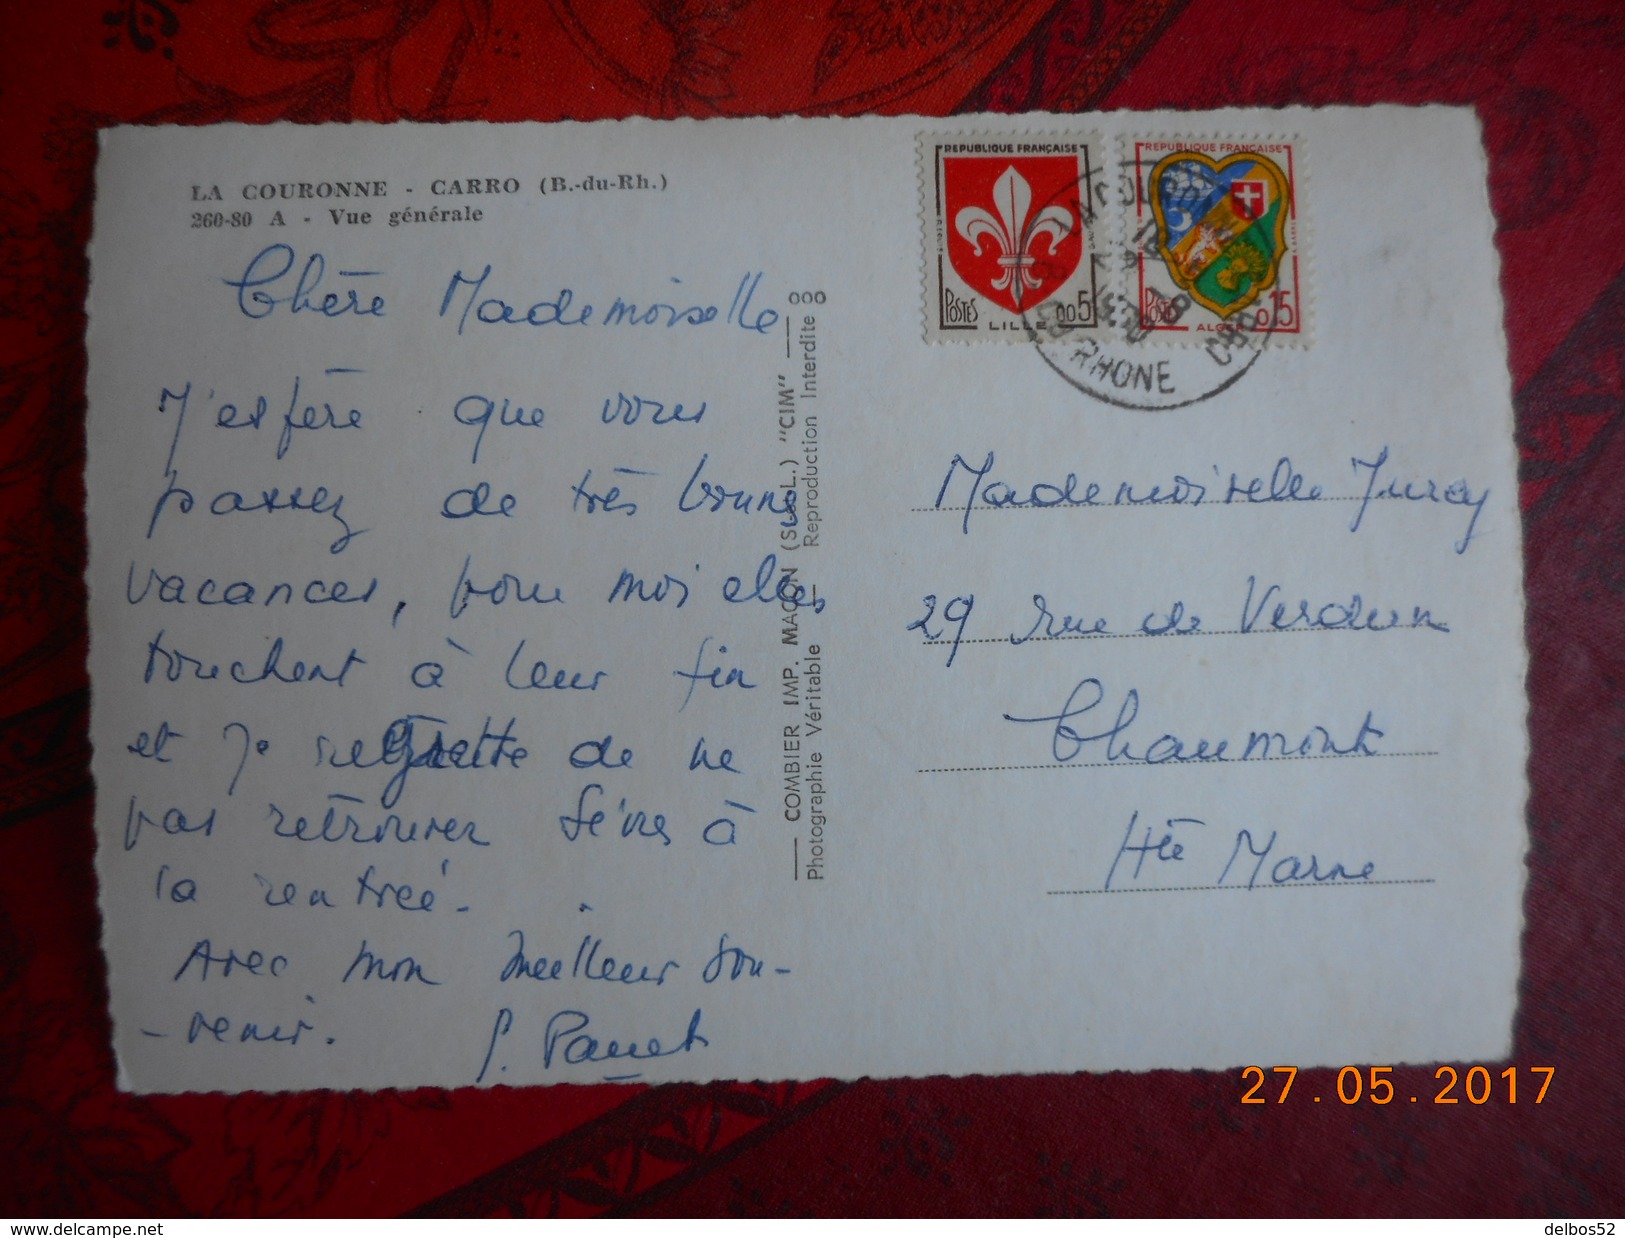 LA COURONNE - CARRO (B.-du-Rh.)
260-80 A - Vue générale
Chère Mademoiselle
J'espère que vous
passez de très bonnes
vacances, pour moi elles
touchent à leur fin
et je regrette de ne
pas retrouver Sèvres à
la rentrée.
Avec mon meilleur sou-
-venir.
COMBIER IMP. MACON (S.-&-L.) "CIM"
Photographie Véritable - Reproduction Interdite
REPUBLIQUE FRANÇAISE
POSTES 0,05
LILLE
REPUBLIQUE FRANÇAISE
POSTES 0,15
ALGER
LA COURONNE
RHONE
Mademoiselle Jurcy
29 rue de Verdun
Chaumont
Hte Marne
27.05.2017
www.delcampe.net
delbos52